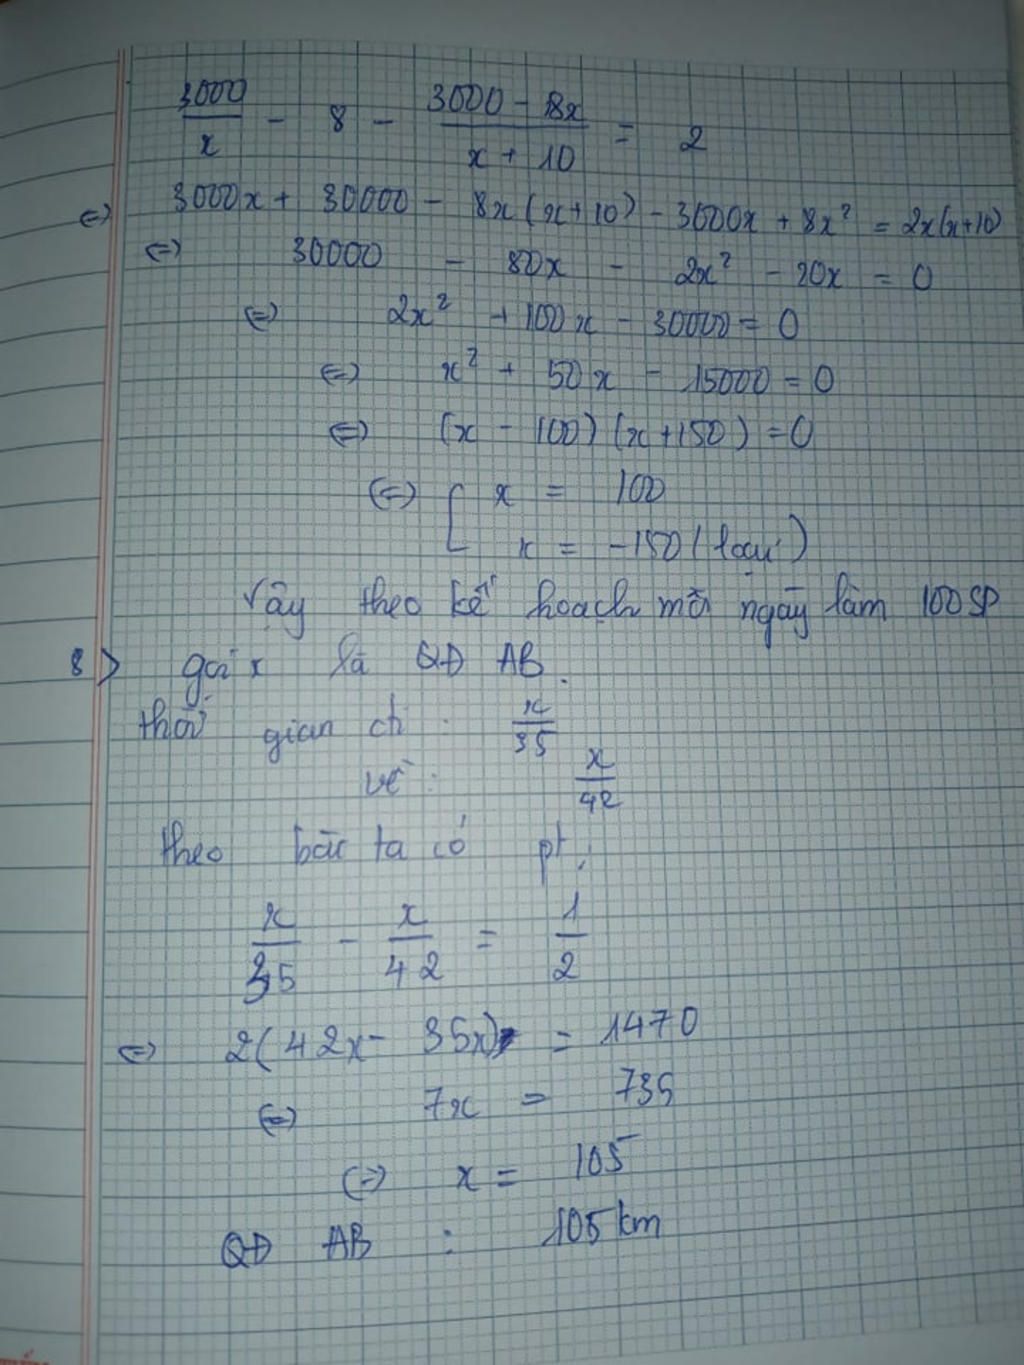 3000/x - 8 - (3000 - 8x)/(x + 10) = 2
<=> 3000x + 30000 - 8x(x+10) - 3000x + 8x² = 2x(x+10)
<=> 30000 - 80x - 2x² - 20x = 0
<=> 2x² + 100x - 30000 = 0
<=> x² + 50x - 15000 = 0
<=> (x - 100)(x+150) = 0
<=> [ x = 100
x = -150 (loại)
Vậy theo kế hoạch mỗi ngày làm 100 SP
8> gọi x là QĐ AB.
thời gian đi : x/35
về : x/42
theo bài ta có pt:
x/35 - x/42 = 1/2
<=> 2(42x - 35x) = 1470
<=> 7x = 735
<=> x = 105
QĐ AB : 105 km